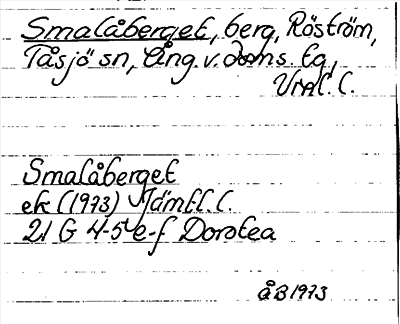 Smalåberget, berg, Röström,
Tåsjö sn, Ång. v. doms. tg,
Vnl. l.
Smalåberget
ek (1973) Jämtl. l.
21 G 4-5 e-f Dorotea
ÅB 1973